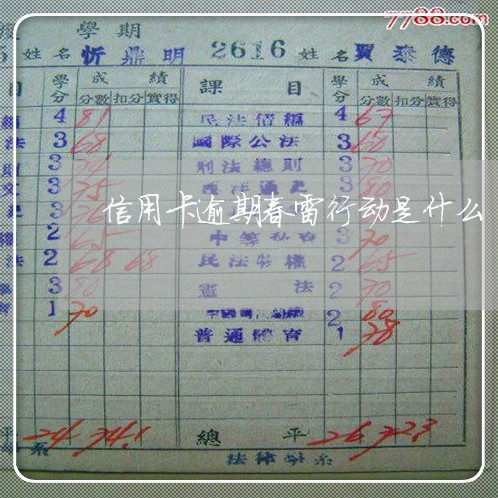 7788.com
學期
姓名 忻鼎明 2616 姓名 賈泰德
目 學分 成績 課目 學分 成績
分數 扣分 實得 分數 扣分 實得
4 81 民法債編 4 67
法 3 68 國際公法 3 60
3 刑法總則 3 70
3 75 3 80
信用卡逾期春雷行动是什么
2 65 3 70
法 2 68 68 民法物權 2 65
3 80 憲法 2 70
1 70 2 80
普通體育 1 78
平 24 74.1 總平 26 72.3
系 法律學系